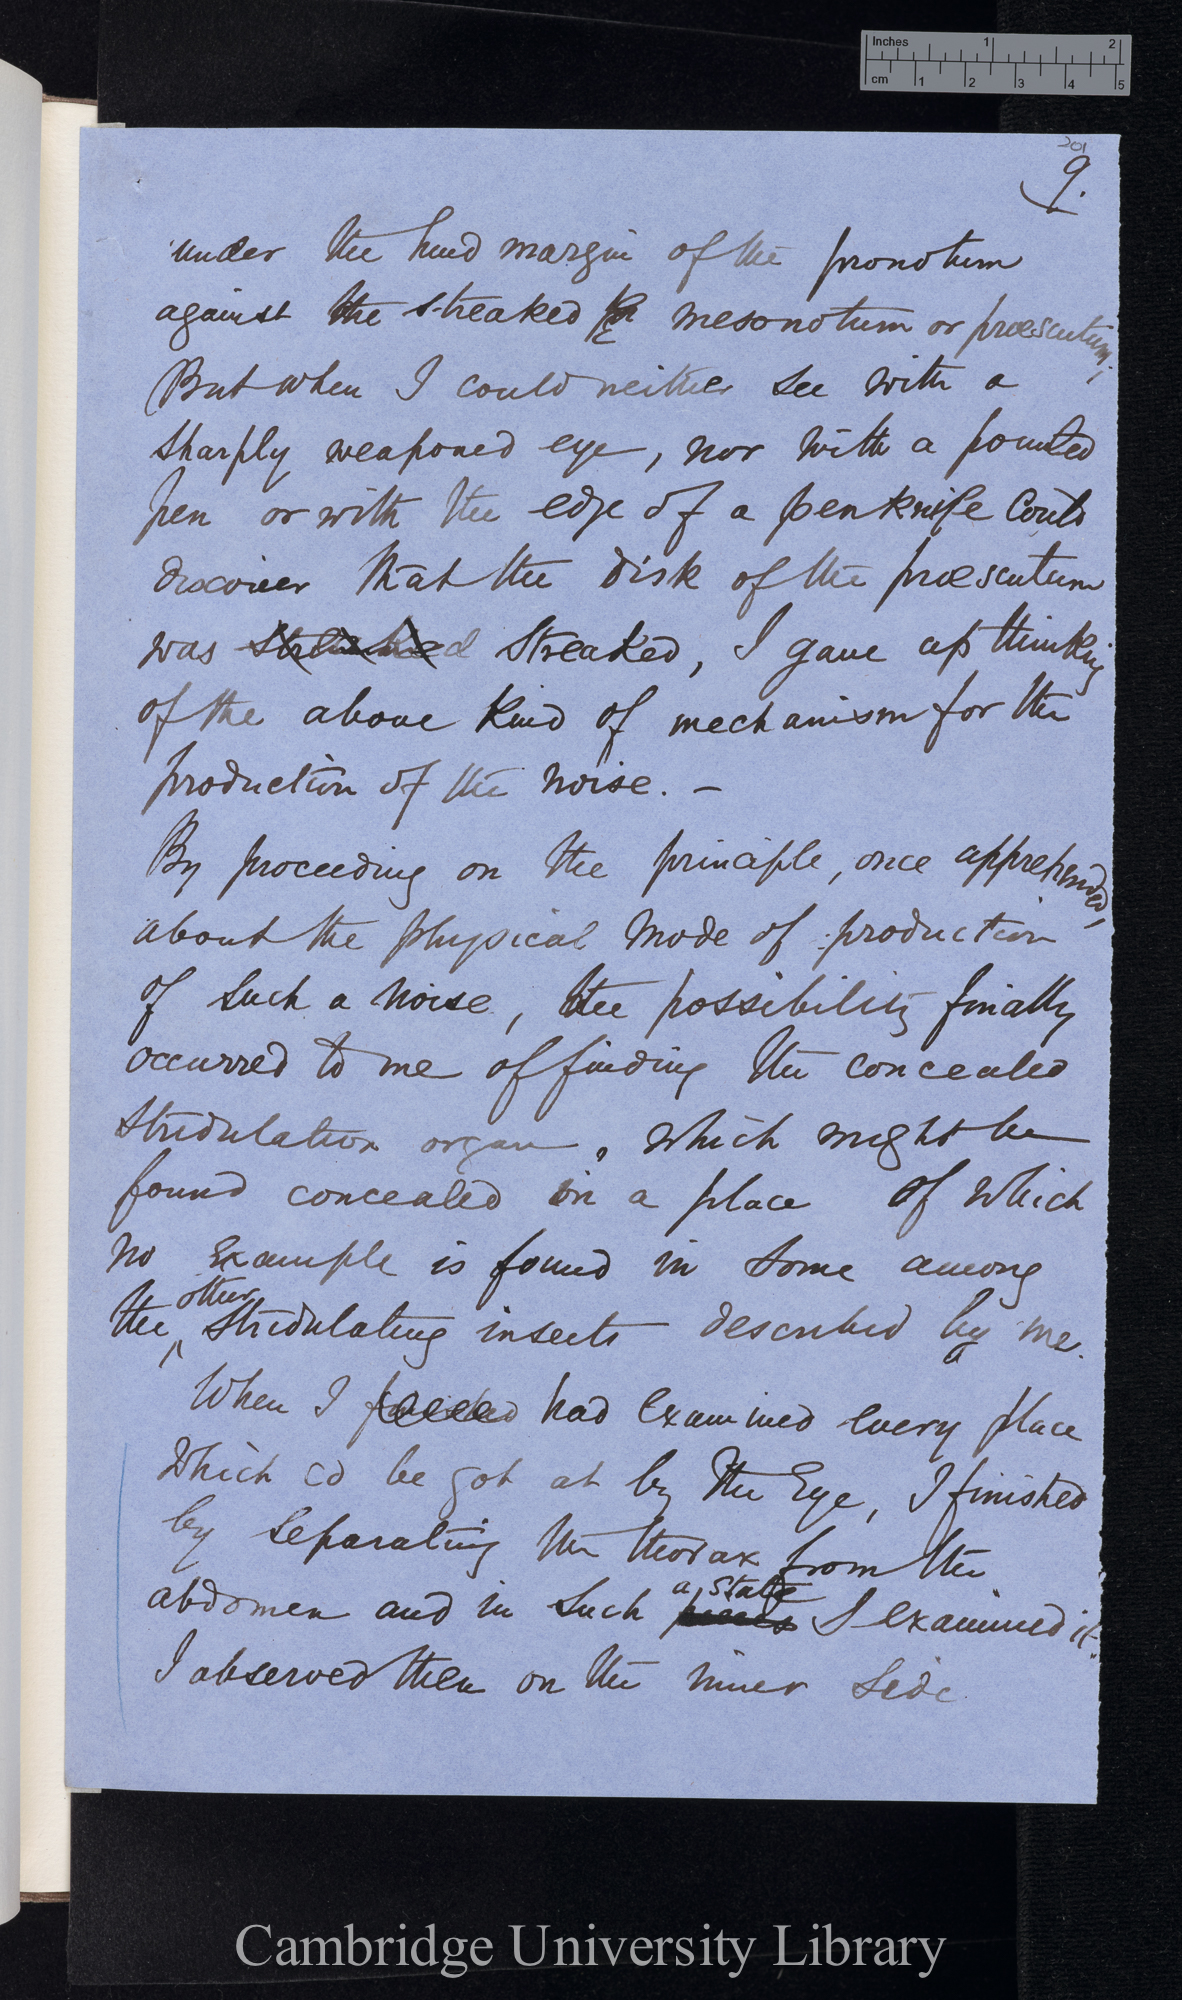 Inches 1 2
cm 1 2 3 4 5
201
9.
under the hind margin of the pronotum
against the streaked mesonotum or præscutum;
But when I could neither see with a
sharply weaponed eye, nor with a pointed
pen or with the edge of a penknife could
discover that the disk of the præscutum
was streaked, I gave up thinking
of the above kind of mechanism for the
production of the noise. —
By proceeding on the principle, once apprehended,
about the physical mode of production
of such a noise, the possibility finally
occurred to me of finding the concealed
stridulation organ, which might be
found concealed in a place of which
no example is found in some among
the other stridulating insects described by me.
When I had examined every place
which cd be got at by the Eye, I finished
by separating the thorax from the
abdomen and in such a state I examined it.
I observed then on the inner side
Cambridge University Library